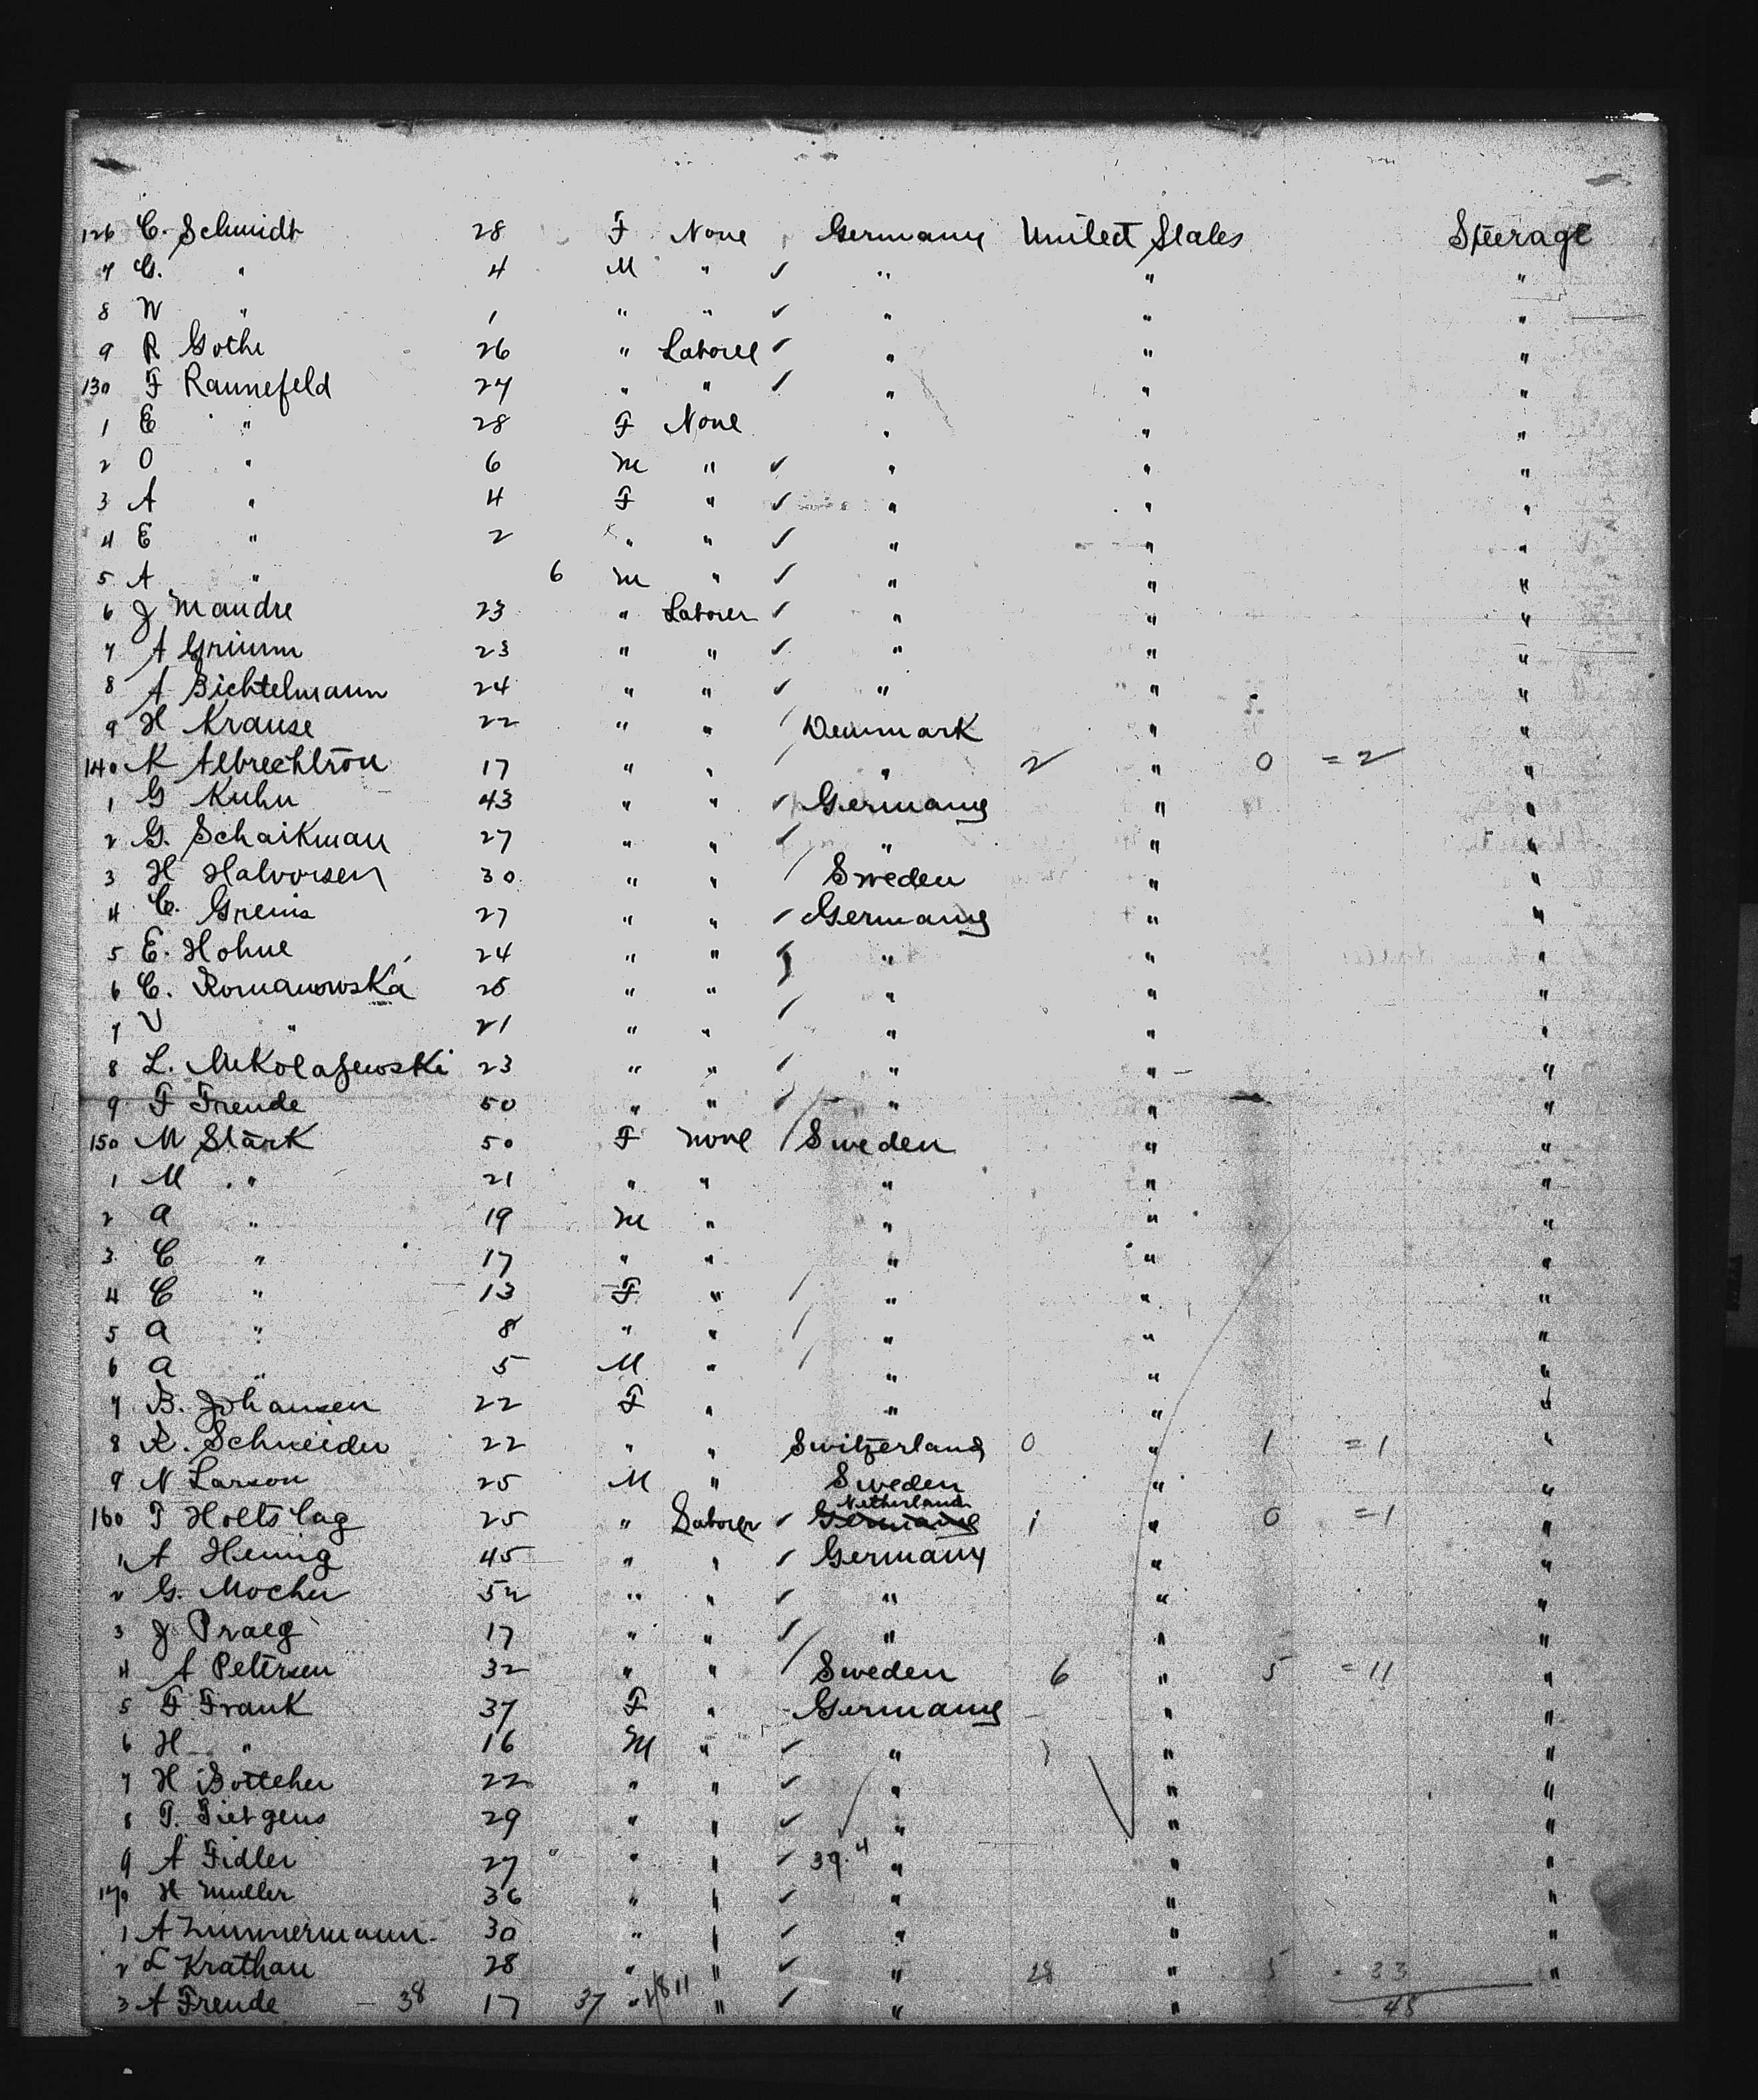 126 C. Schmidt 28 F None Germany United States Steerage
7 G. " 4 M " ✓ " " "
8 W " 1 " " ✓ " " "
9 R Gothe 26 " Laborer ✓ " " "
130 F Rannefeld 24 " " ✓ " " "
1 E " 28 F None " " "
2 O " 6 M " ✓ " " "
3 A " 4 F " ✓ " " "
4 E " 2 " " ✓ " " "
5 A " 6 M " ✓ " " "
6 J Mandre 23 " Laborer ✓ " " "
7 A Grimm 23 " " ✓ " " "
8 A Bichtelmann 24 " " ✓ " " "
9 H Krause 22 " " / Denmark " "
140 K 17 " " " 2 " 0 = 2 "
1 G Kuhn 43 " " ✓ Germany " "
2 G. Schaikman 27 " " ✓ " " "
3 H Halvorsen 30 " " / Sweden " "
4 C. Greins 27 " " ✓ Germany " "
5 E. Hohne 24 " " " " "
6 C. Romanowska 25 " " / " " "
7 V " 21 " " " " "
8 L. Mikolajewski 23 " " ✓ " " "
9 F Frende 50 " " ✓ " " "
150 M Stark 50 F None / Sweden " "
1 M " 21 " " " " "
2 A " 19 M " " " "
3 C " 17 " " " " "
4 C " 13 F " / " " "
5 A " 8 " " / " " "
6 A " 5 M " / " " "
7 B. Johansen 22 F " " " "
8 R. Schneider 22 " " Switzerland 0 " 1 = 1 "
9 N Larson 25 M " Sweden " "
Netherland
160 T Holtslag 25 " Laborer ✓ Germany 1 " 0 = 1 "
1 A Hennig 45 " " ✓ Germany " "
2 G. Mocher 52 " " ✓ " " "
3 J Praeg 17 " " ✓ " " "
4 A Petersen 32 " " / Sweden 6 " 5 = 11 "
5 F Frank 37 F " Germany " "
6 H " 16 M " ✓ " " "
7 H Bottcher 22 " " ✓ " " "
8 P. Tietgens 29 " " ✓ " " "
9 A Fidler 27 " " " ✓ 39. 4 " " "
170 H Muller 36 " " ✓ " " "
1 A Zimmermann 30 " " ✓ " " "
2 L Krathau 28 " " ✓ " 28 " 5 33 "
3 A Frende - 38 17 37 " 11 " ✓ " " 48